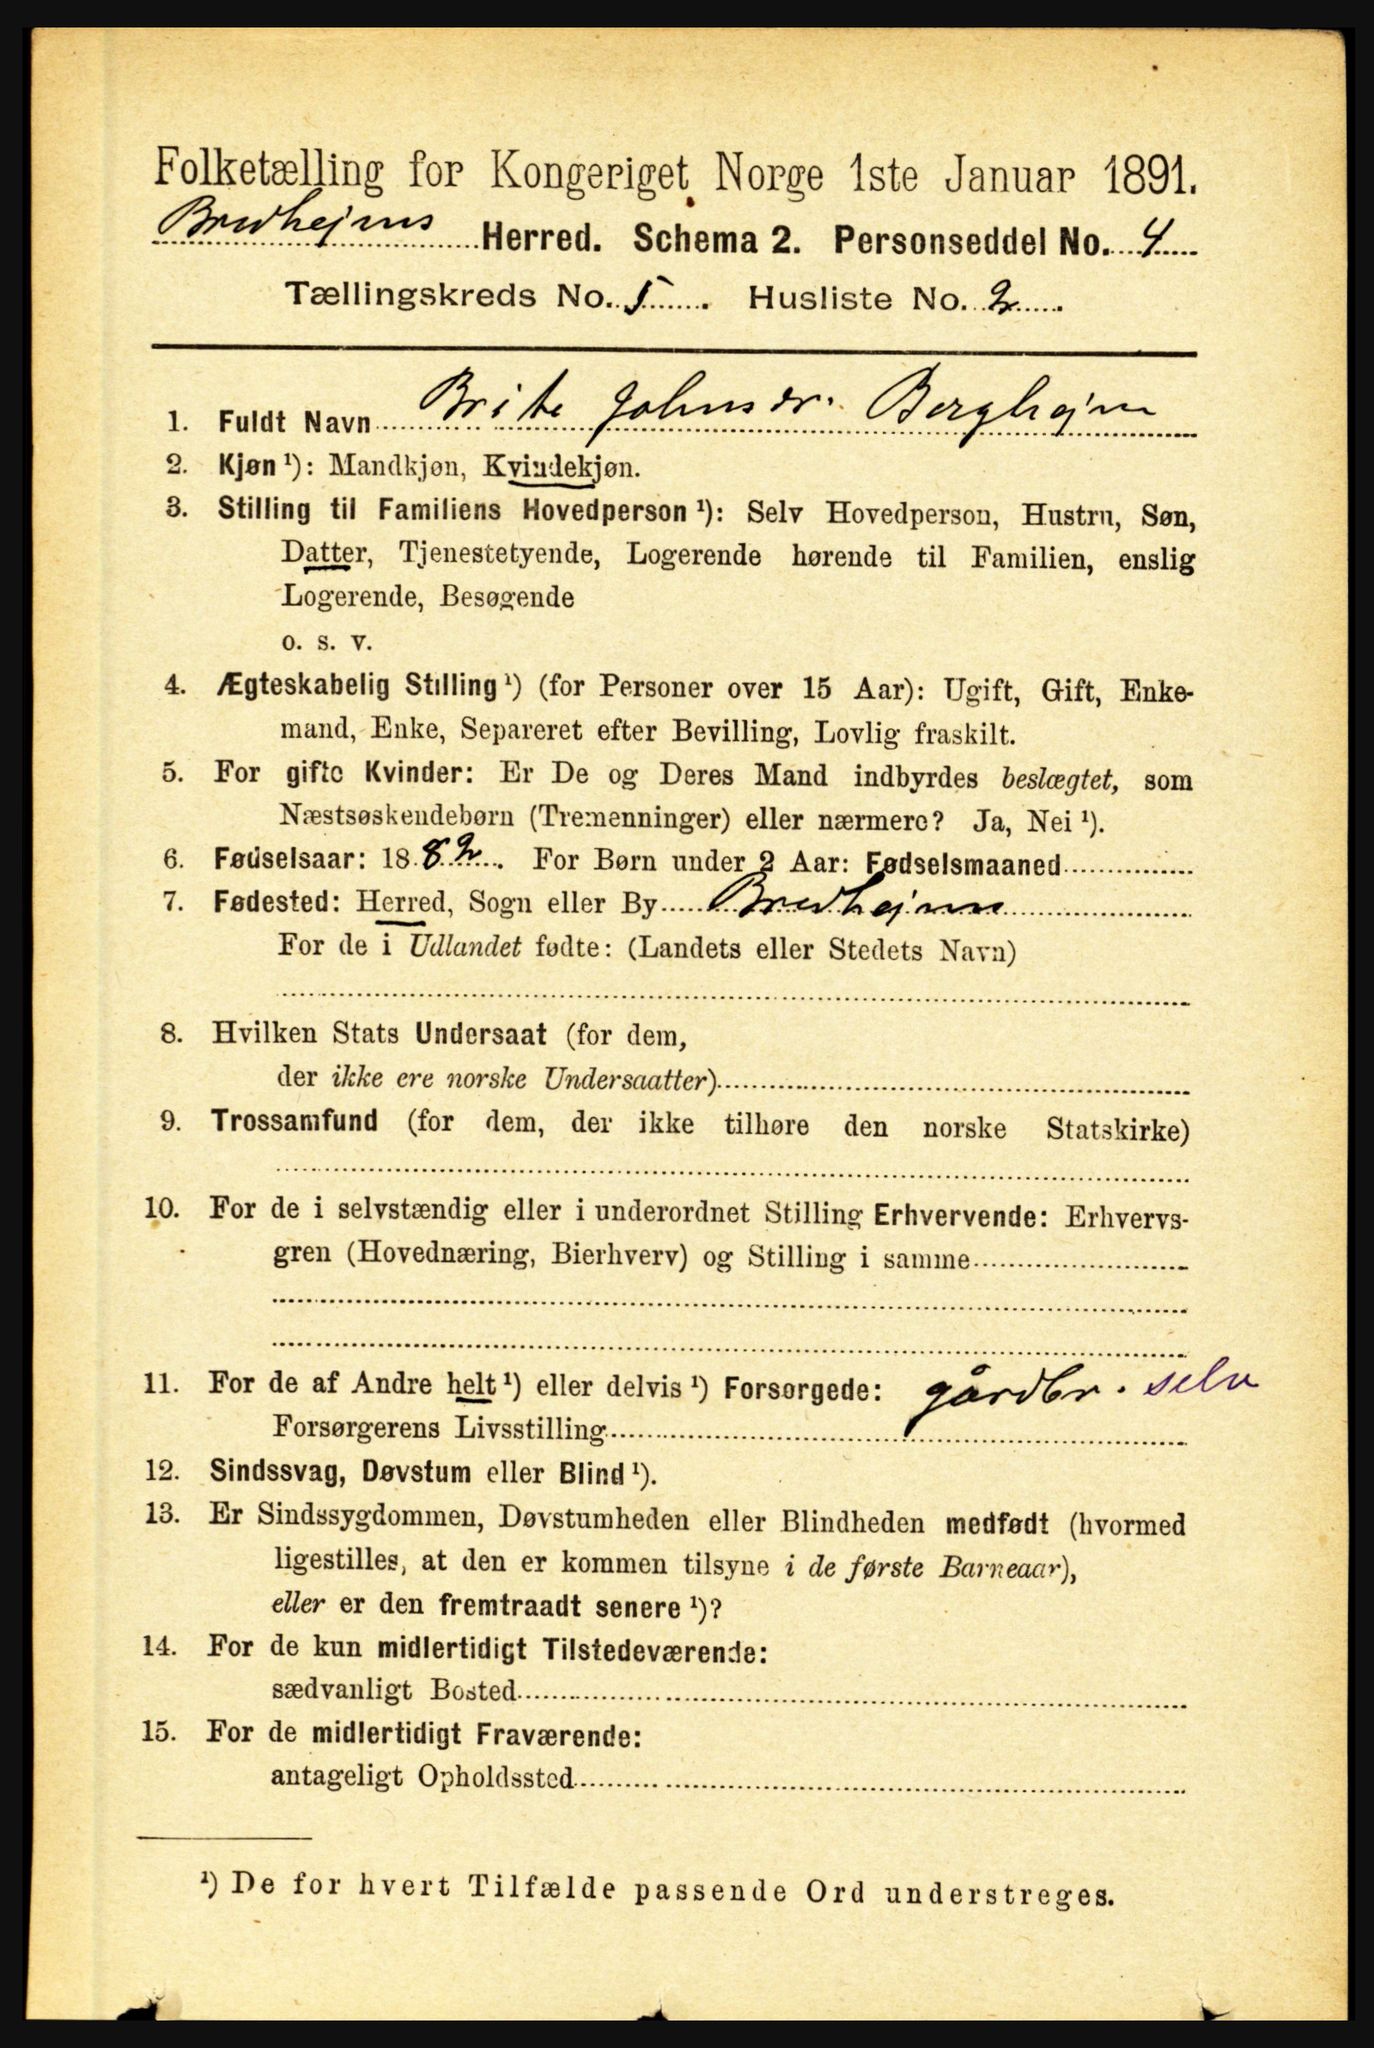 Folketælling for Kongeriget Norge 1ste Januar 1891.
Bredhejms Herred. Schema 2. Personseddel No. 4
Tællingskreds No. 5. Husliste No. 2.
1. Fuldt Navn Brite Johnsdr. Berghejm
2. Kjøn ¹): Mandkjøn, Kvindekjøn.
3. Stilling til Familiens Hovedperson ¹): Selv Hovedperson, Hustru, Søn,
Datter, Tjenestetyende, Logerende hørende til Familien, enslig
Logerende, Besøgende
o. s. v.
4. Ægteskabelig Stilling ¹) (for Personer over 15 Aar): Ugift, Gift, Enke-
mand, Enke, Separeret efter Bevilling, Lovlig fraskilt.
5. For gifte Kvinder: Er De og Deres Mand indbyrdes beslægtet, som
Næstsøskendebørn (Tremenninger) eller nærmere? Ja, Nei ¹).
6. Fødselsaar: 1882. For Børn under 2 Aar: Fødselsmaaned
7. Fødested: Herred, Sogn eller By Bredhejm
For de i Udlandet fødte: (Landets eller Stedets Navn)
8. Hvilken Stats Undersaat (for dem,
der ikke ere norske Undersaatter)
9. Trossamfund (for dem, der ikke tilhøre den norske Statskirke)
10. For de i selvstændig eller i underordnet Stilling Erhvervende: Erhvervs-
gren (Hovednæring, Bierhverv) og Stilling i samme
11. For de af Andre helt ¹) eller delvis ¹) Forsørgede: gårdbr. selv
Forsørgerens Livsstilling
12. Sindssvag, Døvstum eller Blind ¹).
13. Er Sindssygdommen, Døvstumheden eller Blindheden medfødt (hvormed
ligestilles, at den er kommen tilsyne i de første Barneaar),
eller er den fremtraadt senere ¹)?
14. For de kun midlertidigt Tilstedeværende:
sædvanligt Bosted
15. For de midlertidigt Fraværende:
antageligt Opholdssted
¹) De for hvert Tilfælde passende Ord understreges.